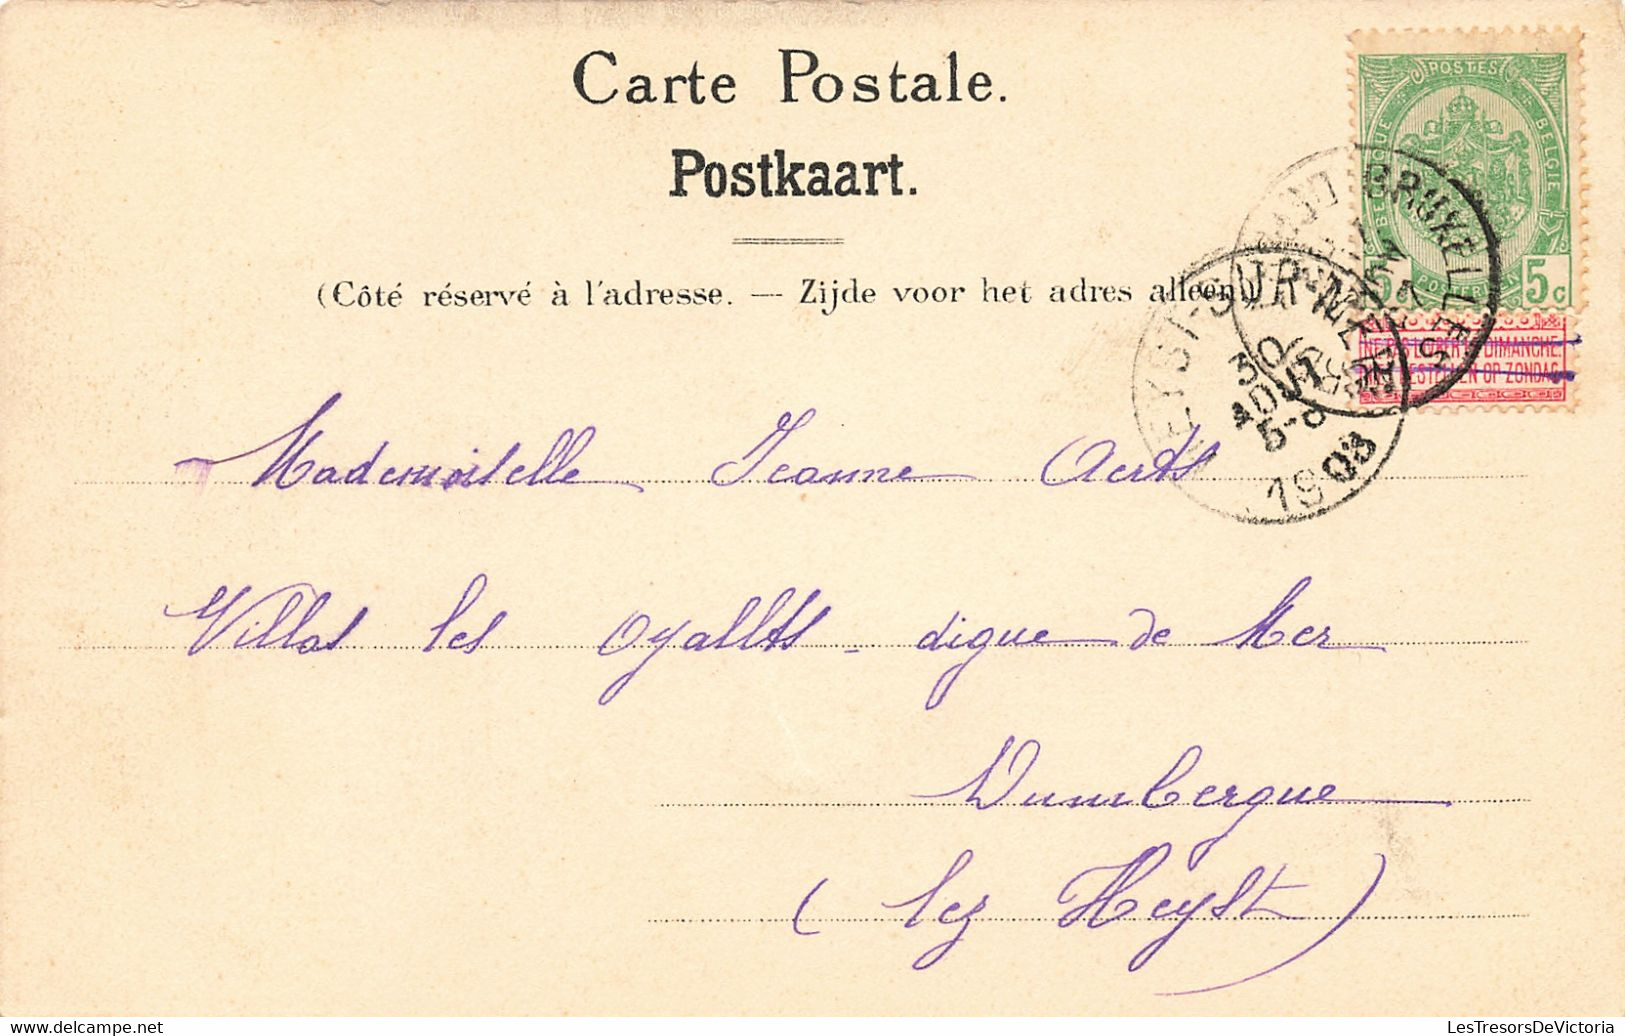 Carte Postale.
Postkaart.
(Côté réservé à l'adresse. — Zijde voor het adres alleen.)
POSTES
BELGIQUE
BELGIË
POSTERIJEN
5c 5c
NE PAS LIVRER LE DIMANCHE.
NIET BESTELLEN OP ZONDAG.
BRUXELLES
HEYST-SUR-MER
30
AOUT
5-6
1903
Mademoiselle Jeanne Aerts
Villas les Oyallts - digue de Mer
Dumbergue
(lez Heyst)
LesTresorsDeVictoria
LesTresorsDeVictoria